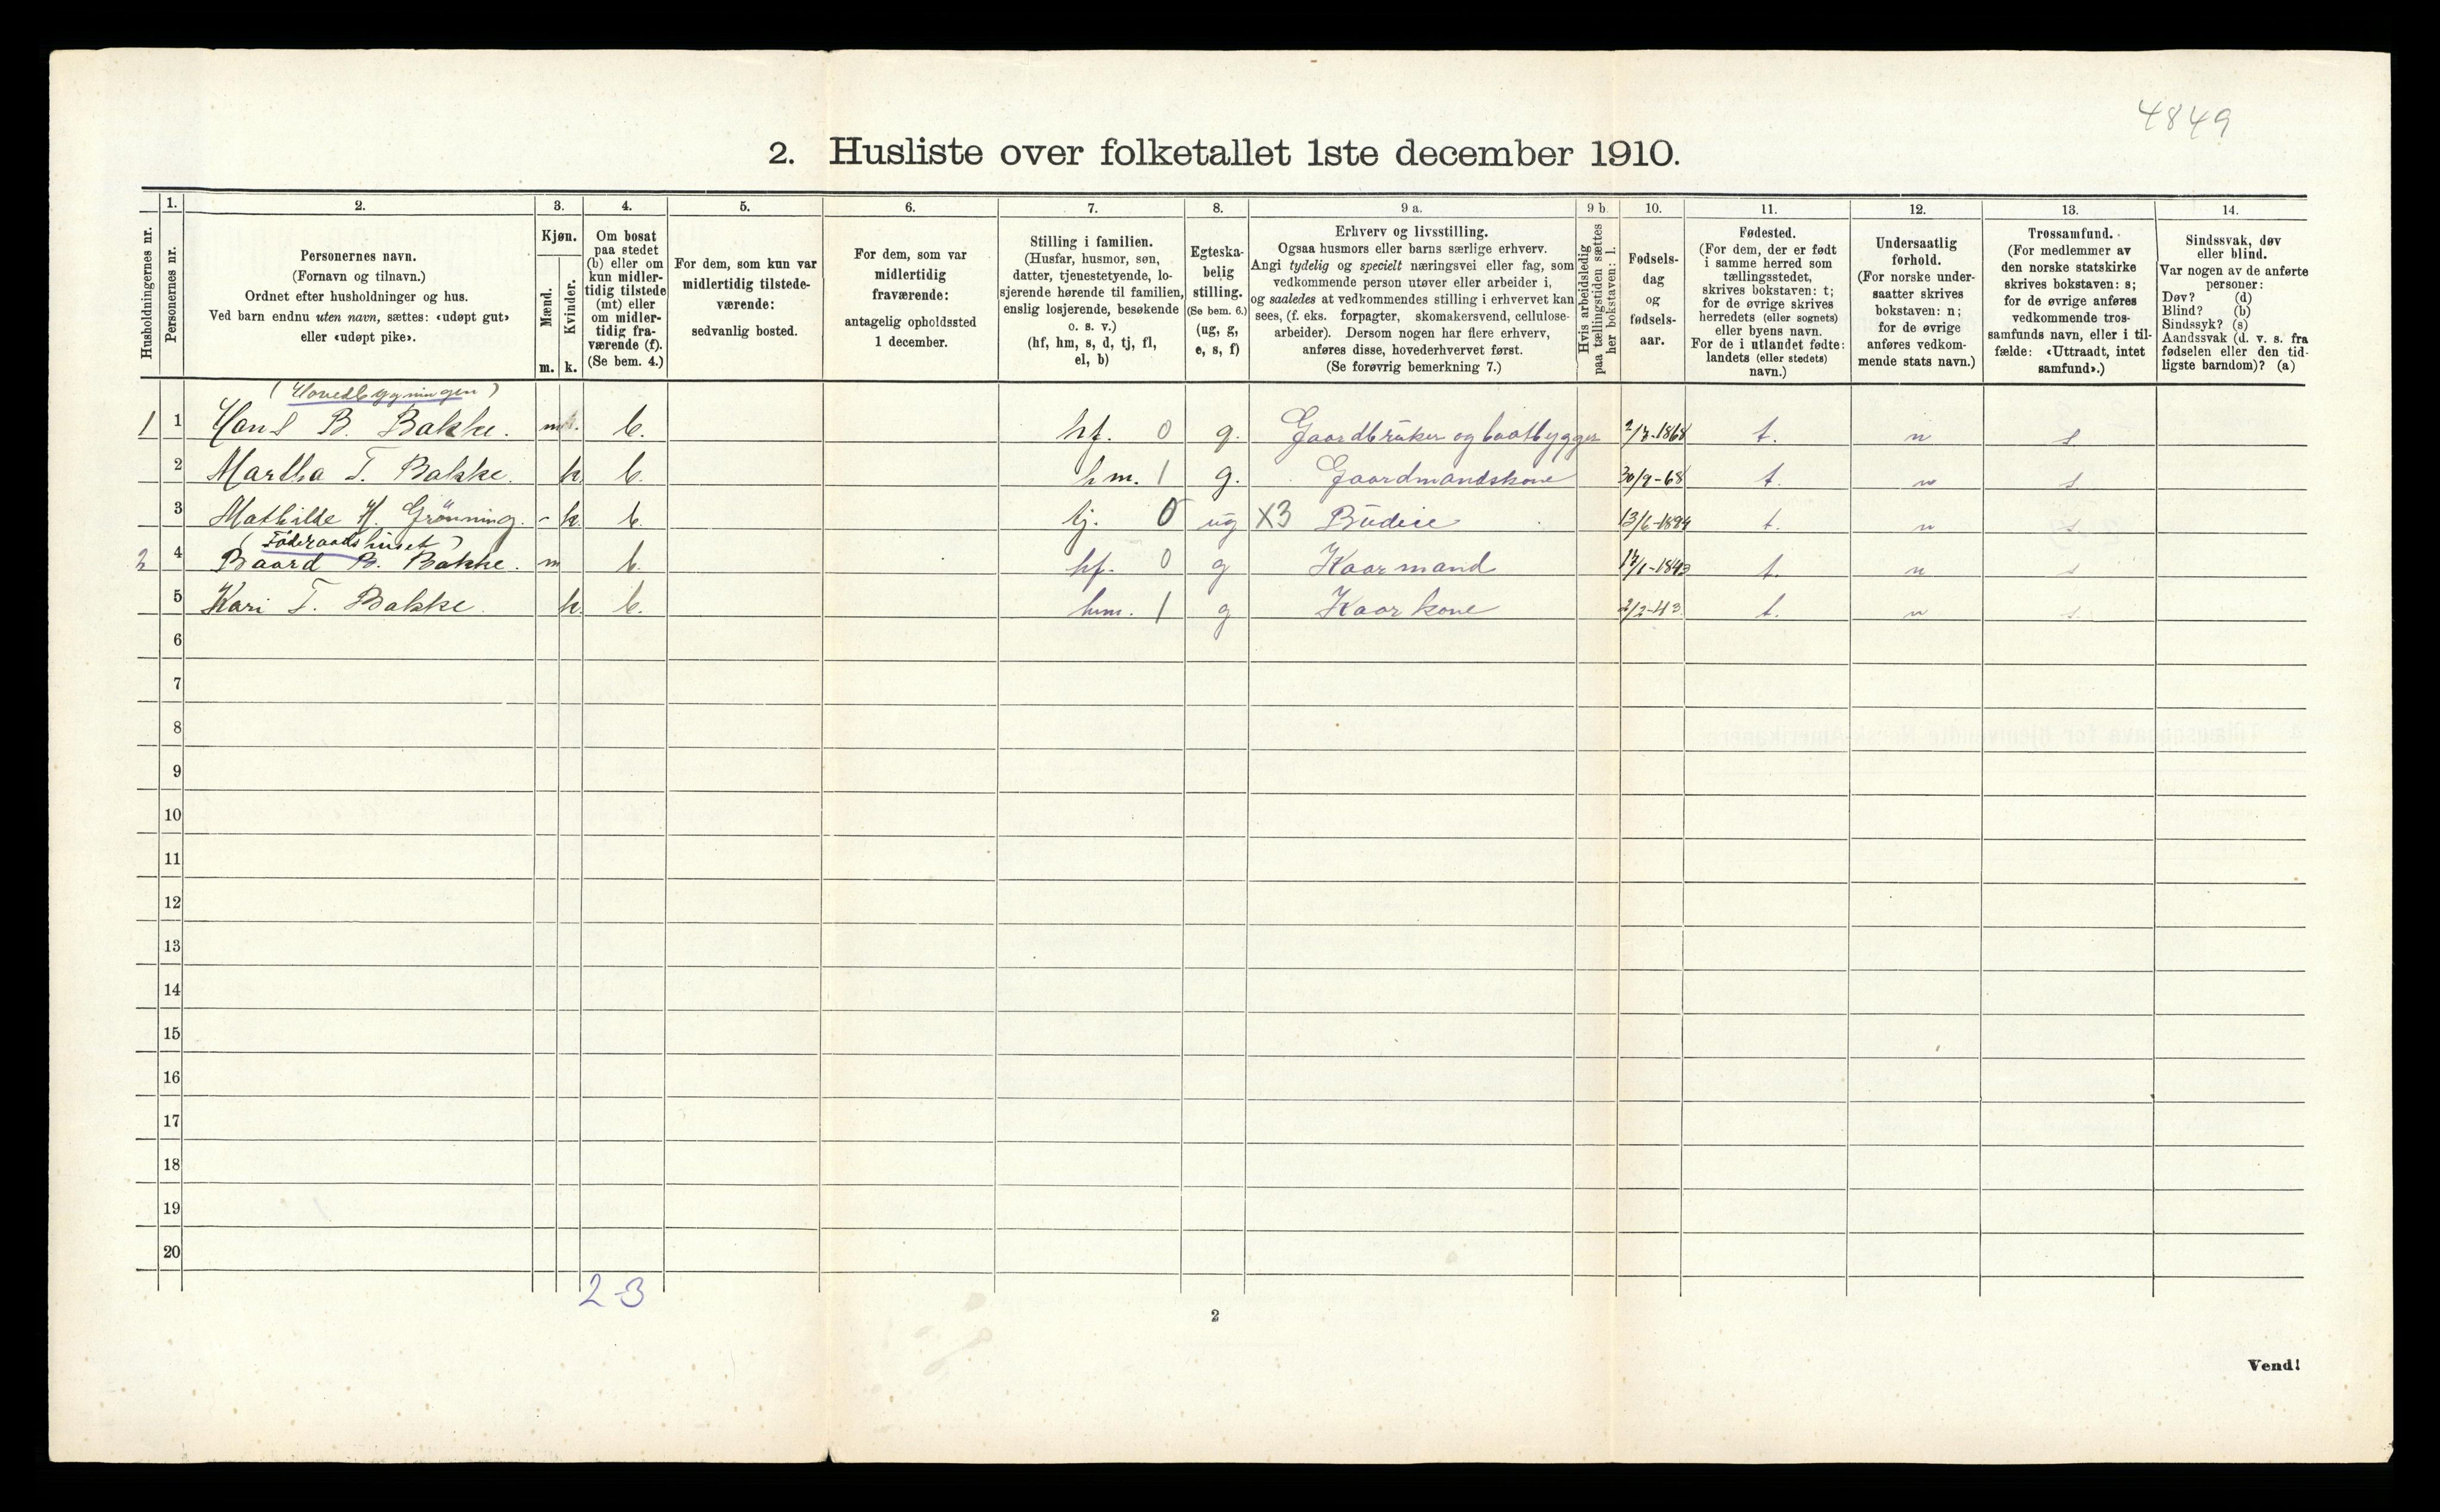 4849
2. Husliste over folketallet 1ste december 1910.
Husholdningernes nr.
1.
Personernes nr.
2.
Personernes navn.
(Fornavn og tilnavn.)
Ordnet efter husholdninger og hus.
Ved barn endnu uten navn, sættes: «udøpt gut»
eller «udøpt pike».
3.
Kjøn.
Mænd.
Kvinder.
m. k.
4.
Om bosat
paa stedet
(b) eller om
kun midler-
tidig tilstede
(mt) eller
om midler-
tidig fra-
værende (f).
(Se bem. 4.)
5.
For dem, som kun var
midlertidig tilstede-
værende:
sedvanlig bosted.
6.
For dem, som var
midlertidig
fraværende:
antagelig opholdssted
1 december.
7.
Stilling i familien.
(Husfar, husmor, søn,
datter, tjenestetyende, lo-
sjerende hørende til familien,
enslig losjerende, besøkende
o. s. v.)
(hf, hm, s, d, tj, fl,
el, b)
8.
Egteska-
belig
stilling.
(Se bem. 6.)
(ug, g,
e, s, f)
9 a.
Erhverv og livsstilling.
Ogsaa husmors eller barns særlige erhverv.
Angi tydelig og specielt næringsvei eller fag, som
vedkommende person utøver eller arbeider i,
og saaledes at vedkommendes stilling i erhvervet kan
sees, (f. eks. forpagter, skomakersvend, cellulose-
arbeider). Dersom nogen har flere erhverv,
anføres disse, hovederhvervet først.
(Se forøvrig bemerkning 7.)
9 b.
Hvis arbeidsledig
paa tællingstiden sættes
her bokstaven: l.
10.
Fødsels-
dag
og
fødsels-
aar.
11.
Fødested.
(For dem, der er født
i samme herred som
tællingsstedet,
skrives bokstaven: t;
for de øvrige skrives
herredets (eller sognets)
eller byens navn.
For de i utlandet fødte:
landets (eller stedets)
navn.)
12.
Undersaatlig
forhold.
(For norske under-
saatter skrives
bokstaven: n;
for de øvrige
anføres vedkom-
mende stats navn.)
13.
Trossamfund.
(For medlemmer av
den norske statskirke
skrives bokstaven: s;
for de øvrige anføres
vedkommende tros-
samfunds navn, eller i til-
fælde: «Uttraadt, intet
samfund».)
14.
Sindssvak, døv
eller blind.
Var nogen av de anførte
personer:
Døv? (d)
Blind? (b)
Sindssyk? (s)
Aandssvak (d. v. s. fra
fødselen eller den tid-
ligste barndom)? (a)
(Hovedbygningen)
1 1 Hans B. Bakke. m b. hf. 0 g. Gaardbruker og baatbygger 1868 t. n s
2 Martha T. Bakke. k b. hm. 1 g. Gaardmandskone 30/9-68 t. n s
3 Mathilde H. Grönning. - k. b. tj. 0 ug X3 Budeie 13/6-1894 t. n s
(Föderaadshuset)
2 4 Baard B. Bakke. m b. hf. 0 g Kaarmand 1843 t. n s
5 Kari T. Bakke. k. b. hm. 1 g Kaarkone 2/2-43 t. n s.
6
7
8
9
10
11
12
13
14
15
16
17
18
19
20
2-3
2
Vend!